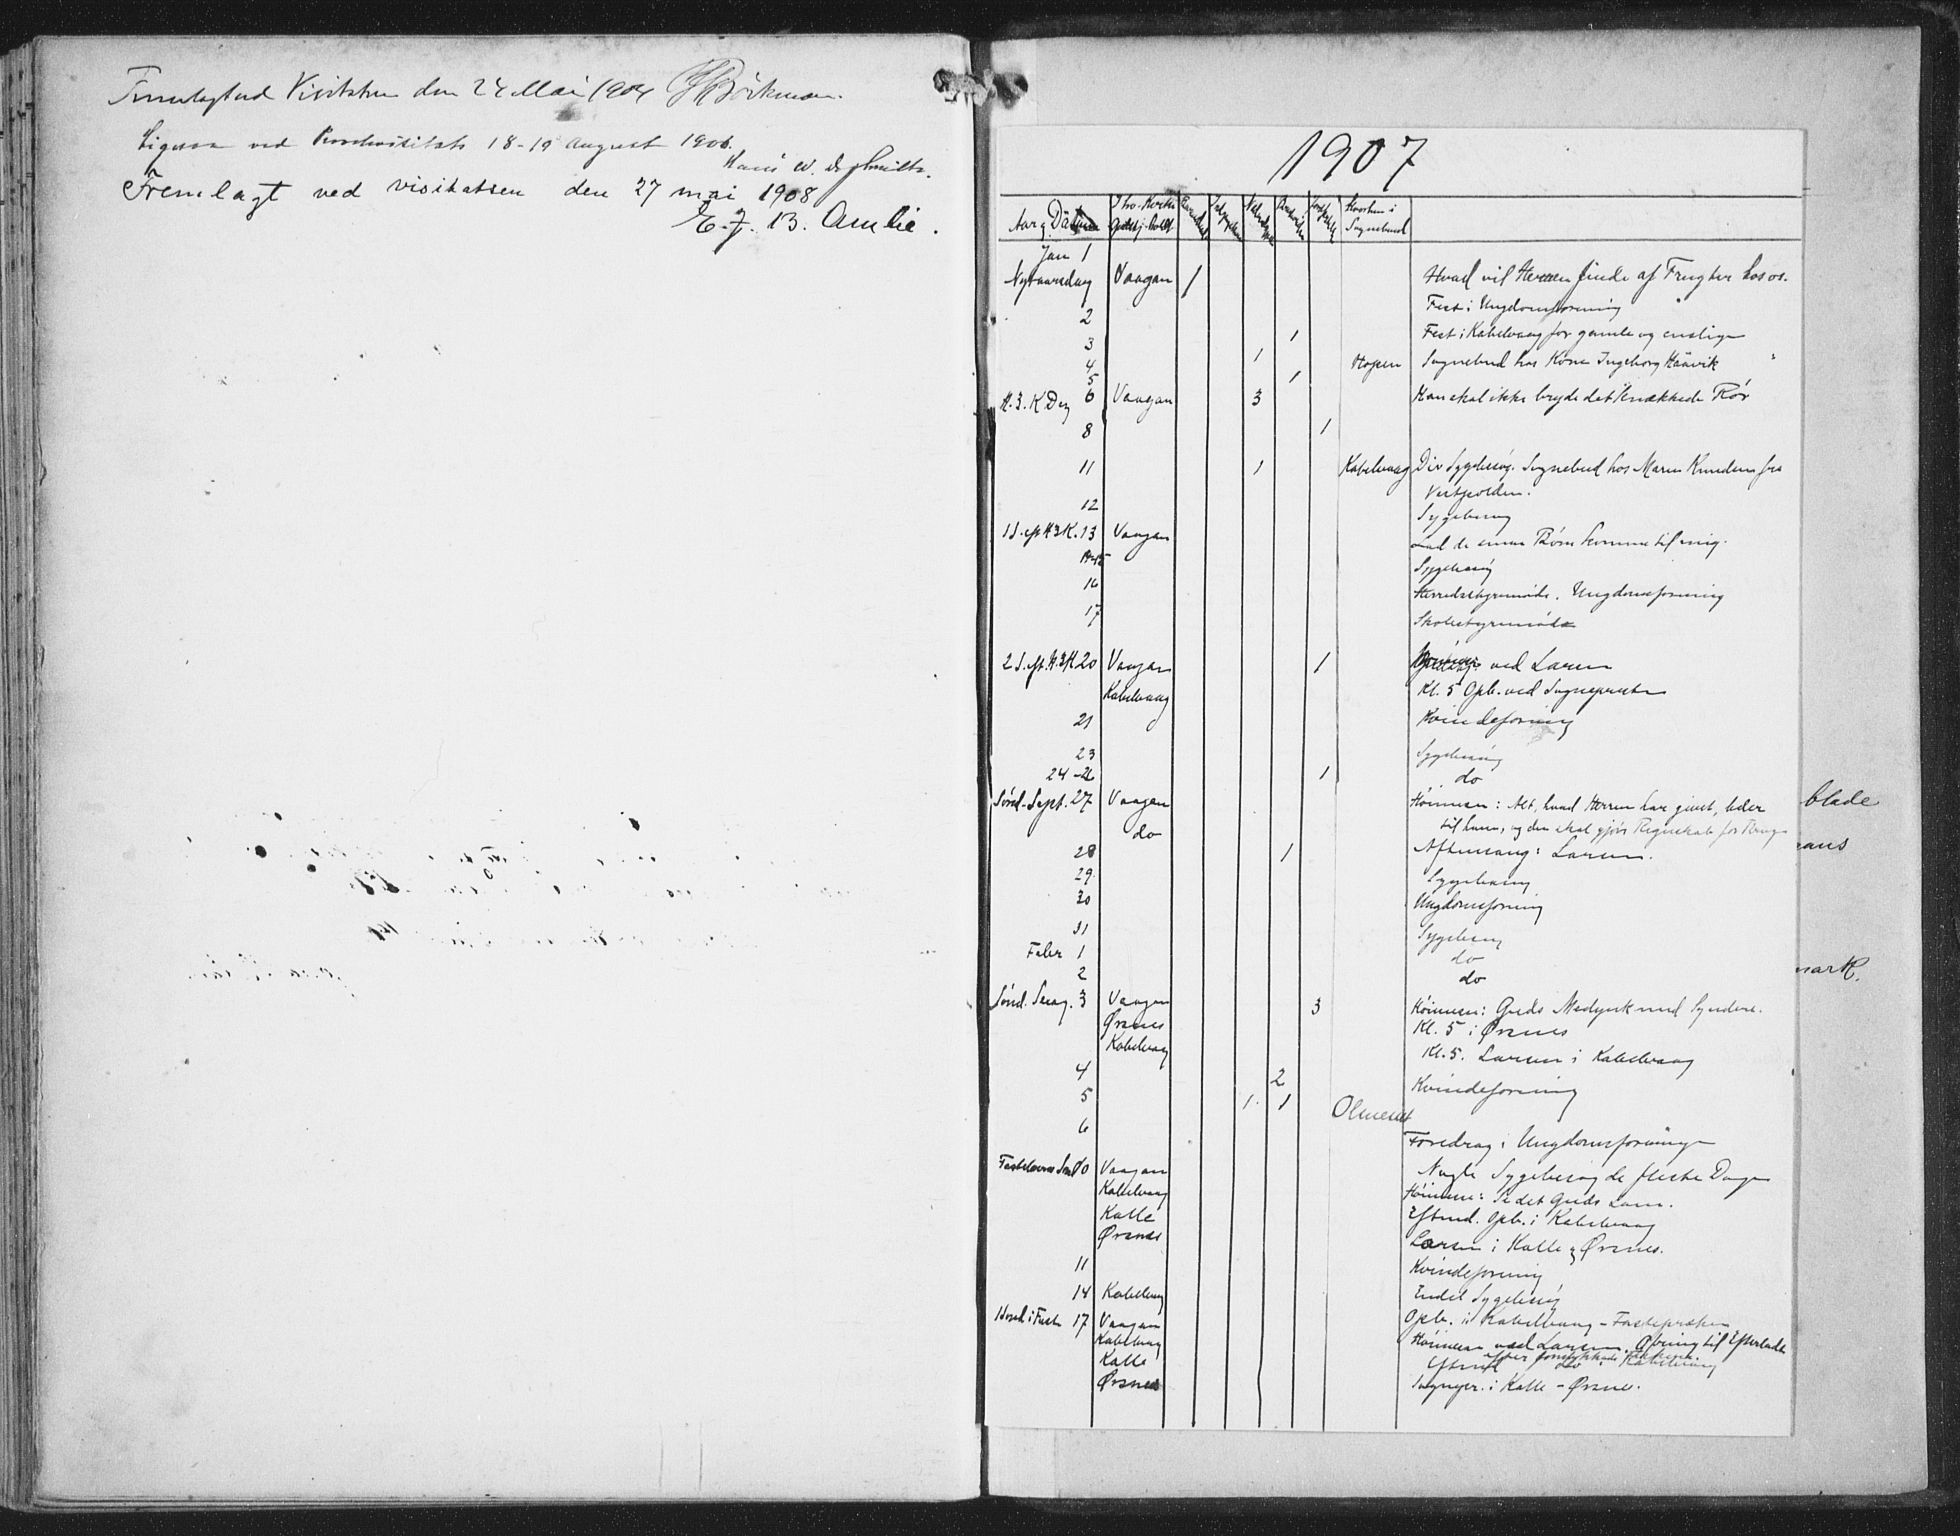 Fremlagt ved Visitatsen den 24 Mai 1904 Böckman.
Ligesaa ved Provstevisitats 18-19 August 1906.
Hans
Fremlagt ved visitatsen den 27 mai 1908
E. J. B. Amlie.
1907
Aar og Datum Hvor Kirke Gudstj. holdt Hvorhen i Sognebud
Jan 1
Nytaarsdag Vaagan 1 Hvad vil Herren finde af Frugter hos os.
2 Fest i Ungdomsforening
3 1 Fest i Kabelvaag for gamle og enslige
4 1 Hopen Sognebud hos Kone Ingeborg Haavik
5 1
H. 3. K Dag 6 Vaagan 3 Han skal ikke bryde det knækkede Rør
8 1
11 1 Kabelvaag Div Sygebesøg. Sognebud hos Maren Knudsen fra
Vestfjorden.
12 Sygebesøg
1 S. eft H3K. 13 Vaagan lad de smaa Børn komme til mig.
14-15 Sygebesøg
16 Herredsstyremøde. Ungdomsforening
17 Skolestyremøde
2 S. eft. H. 3K 20 Vaagan 1 ved Larsen
Kabelvaag Kl. 5 Opb. ved Sognepresten
21 Kvindeforening
23 Sygebesøg
24-26 1 do
Sønd. Sept. 27 Vaagan Høimesse: Alt, hvad Herren har givet, leder
do til ham, og der skal gjøres Regnskab for
28 1 Aftensang: Larsen.
29. Sygebesøg
30 Ungdomsforening
31 Sygebesøg
Febr 1 do
2 do
Sønd. Sexag. 3 Vaagan 3 Høimesse: Guds Medynk med Syndere.
Ørsnes Kl. 5 i Ørsnes
Kabelvaag Kl. 5. Larsen i Kabelvaag
4 2 Kvindeforening
5 1 1
6 Foredrag i Ungdomsforeninge
Nogle Sygebesøg de fleste Dage
Fastelavns Sønd 10 Vaagan Høimesse: Se det Guds Lam.
Kabelvaag Eftmd. Opb. i Kabelvaag
Kalle Larsen i Kalle og Ørsnes.
Ørsnes
11 Kvindeforening
Endel Sygebesøg
14 Kabelvaag Opb. i Kabelvaag - Fasteprædken
1 Sønd i Faste 17 Vaagan Høimesse ved Larsen.
Kabelvaag Eftmd do i Kabelvaag
Kalle
Ørsnes Sognepr. i Kalle - Ørsnes.
blade
aans
mark.